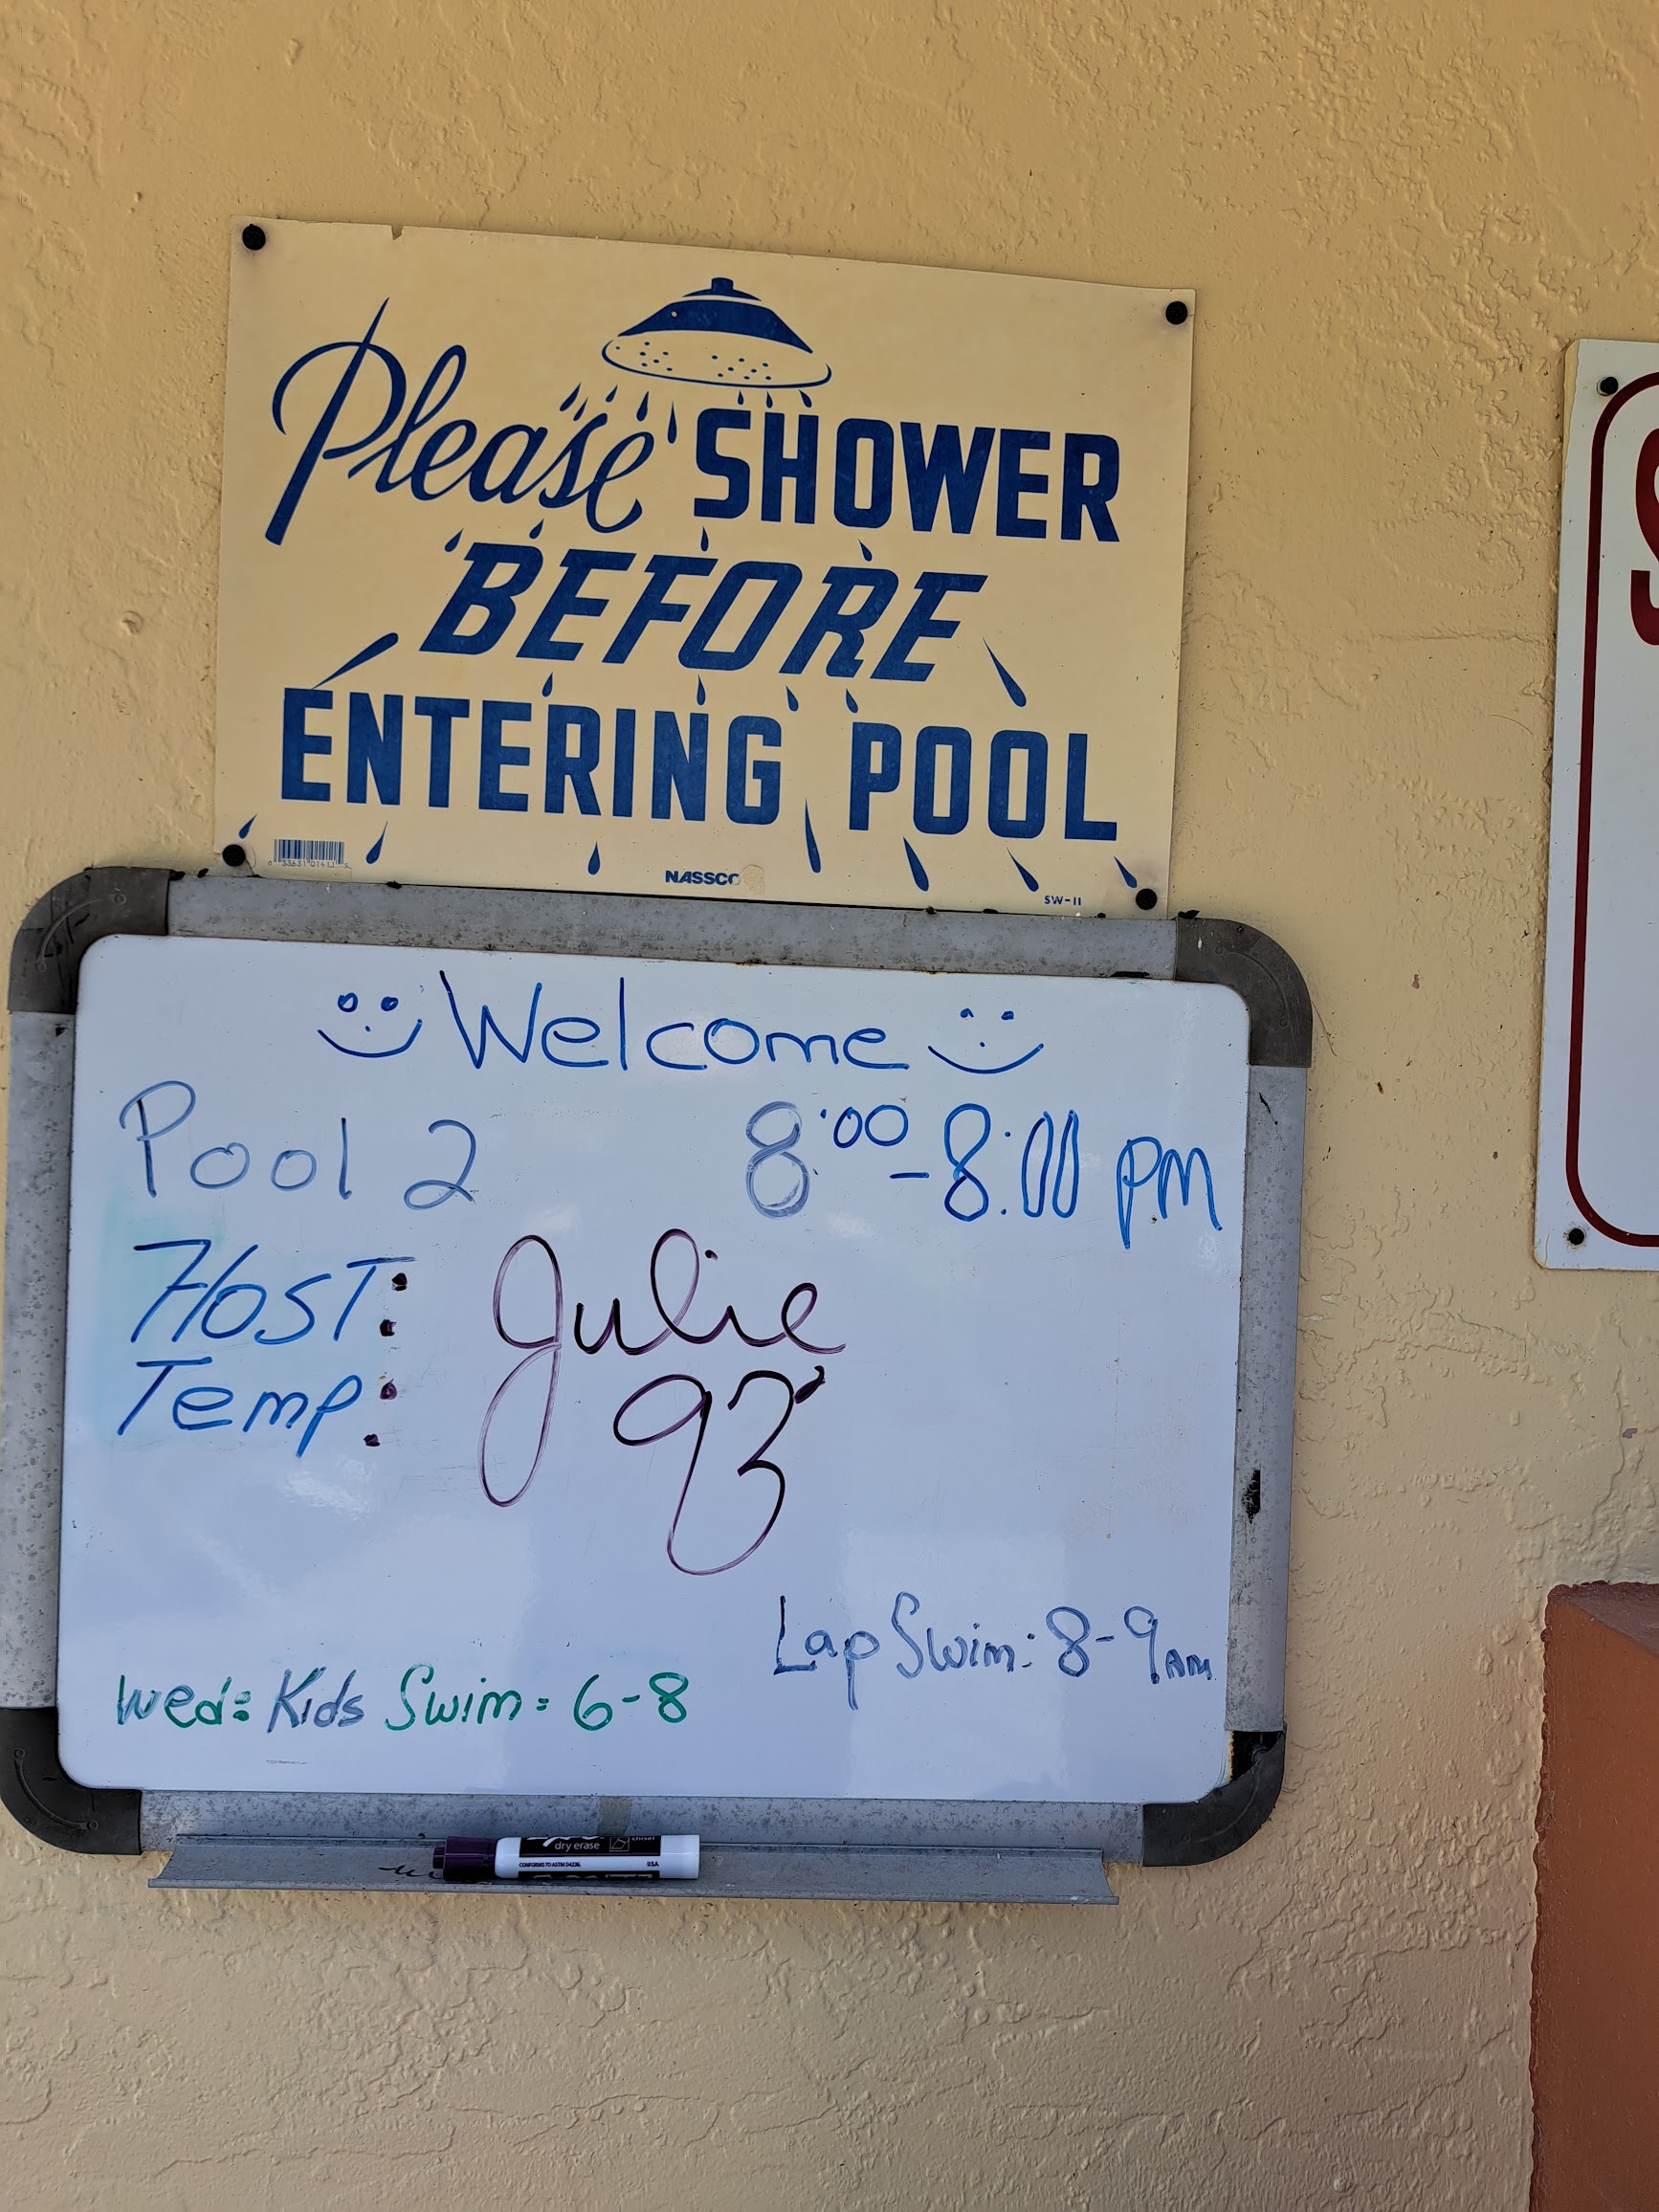 Please SHOWER
BEFORE
ENTERING POOL
NASSCO
SW-11
Welcome
Pool 2 8:00-8:00 pm
Host: Julie
Temp: 93°
Lap Swim: 8-9 AM
Wed: Kids Swim: 6-8
dry erase
chisel
CONFORMS TO ASTM D4236
U.S.A.